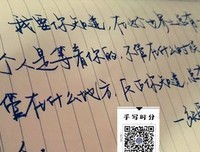 我要你知道，在这个世界上总有一
个人是等着你的，不管在什么时候，
管在什么地方，反正你知道，总
手写时分